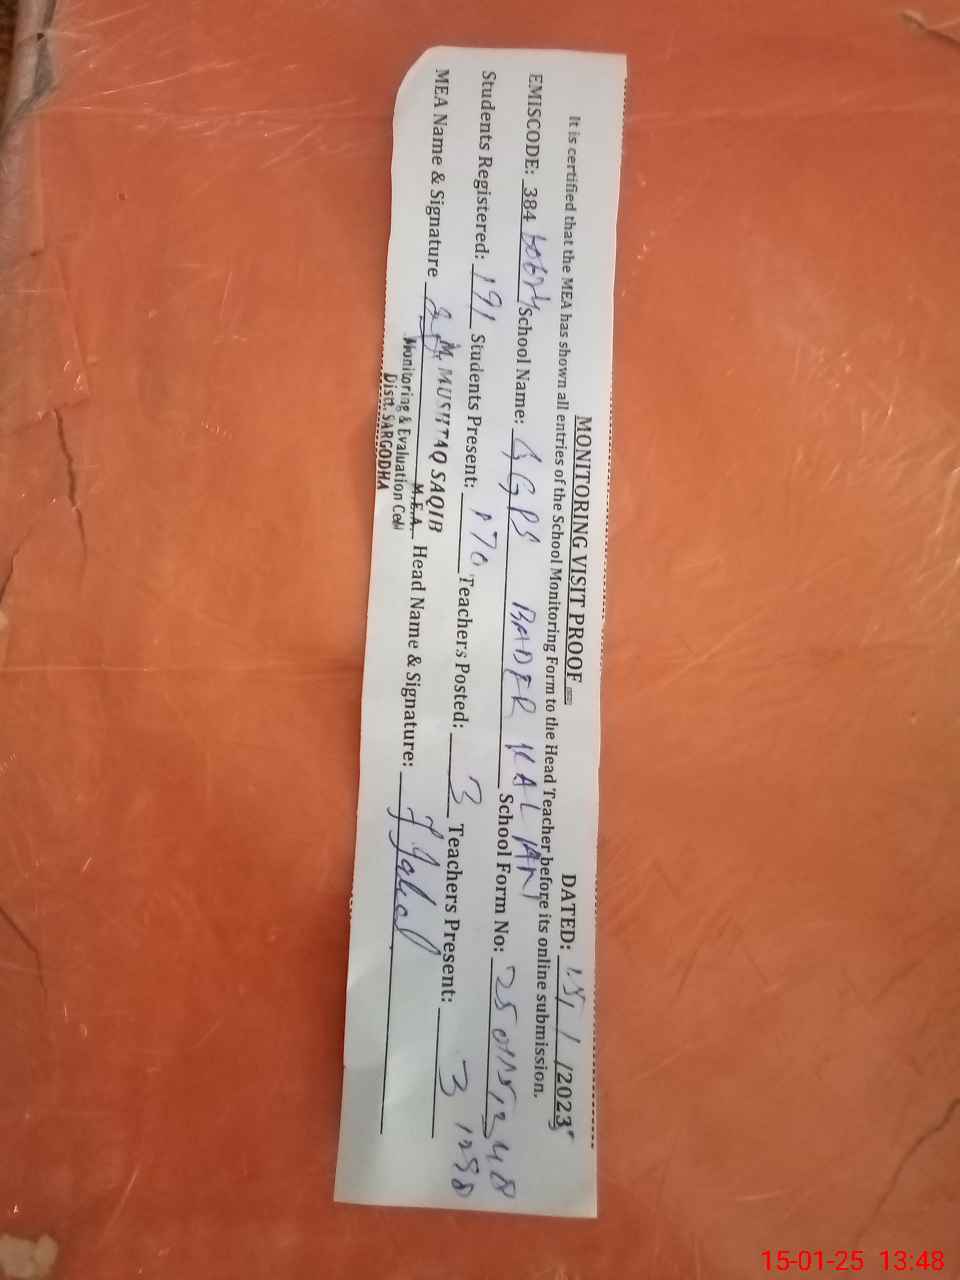 MONITORING VISIT PROOF
DATED: 15/1/2025
It is certified that the MEA has shown all entries of the School Monitoring Form to the Head Teacher before its online submission.
EMISCODE: 384 School Name: GGPS BADER KALIAN School Form No:
Students Registered: 191 Students Present: 170 Teachers Posted: 3 Teachers Present: 3
MEA Name & Signature M. MUSHTAQ SAQIB Head Name & Signature:
M.E.A.
Monitoring & Evaluation Cell
Distt. SARGODHA
15-01-25 13:48